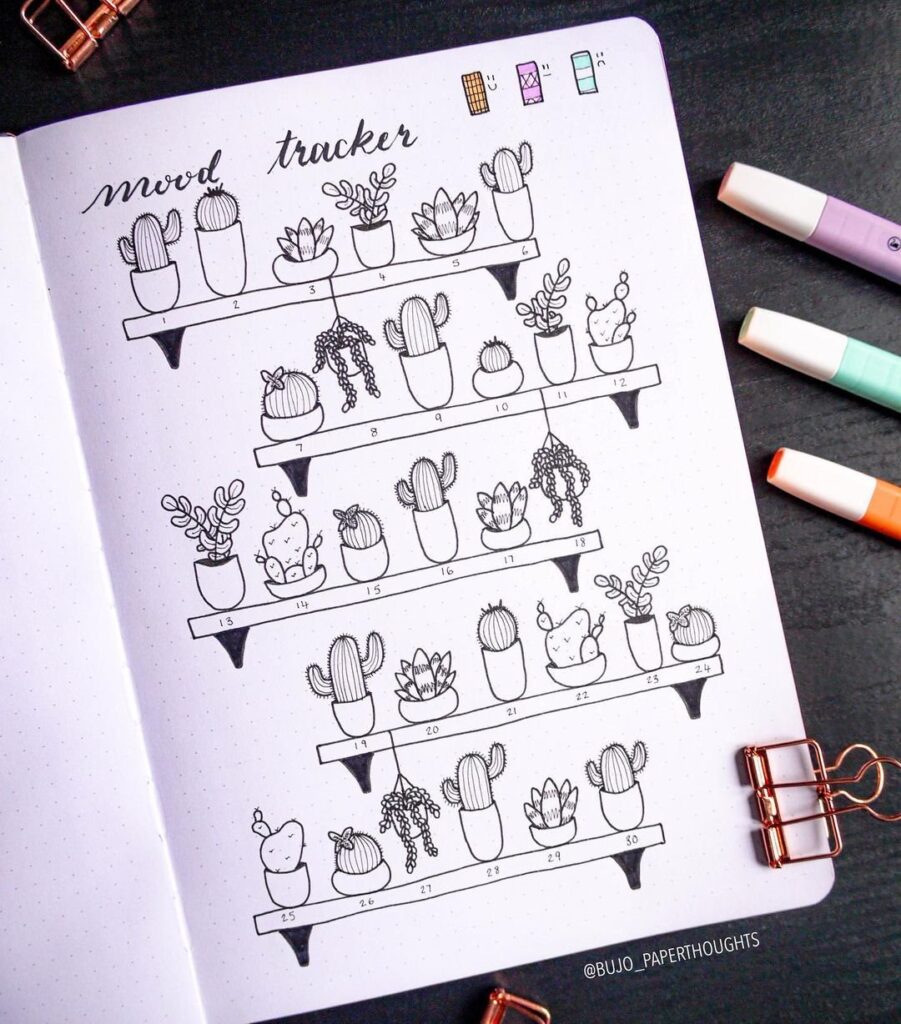 mood tracker
1 2 3 4 5 6
7 8 9 10 11 12
13 14 15 16 17 18
19 20 21 22 23 24
25 26 27 28 29 30
@BUJO_PAPERTHOUGHTS